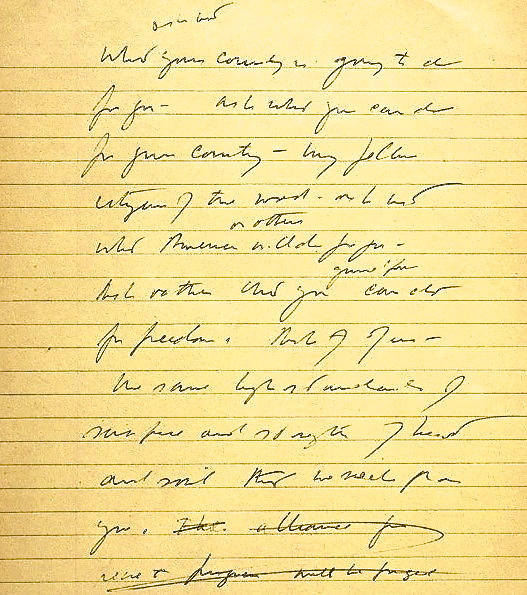 ask not
what your country is going to do
for you - ask what you can do
for your country - my fellow
citizens of the world - ask not
or others
what America will do for you -
ask rather what you can do
for freedom. Ask of us -
the same high standards of
sacrifice and strength of heart
and will that we seek from
you. The alliance for
progress will be forged